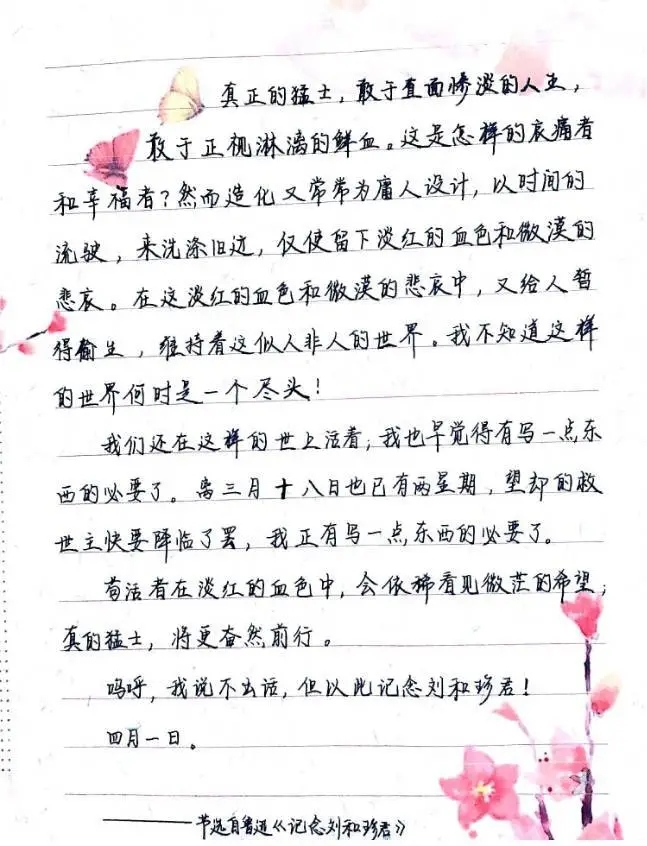 真正的猛士，敢于直面惨淡的人生，
敢于正视淋漓的鲜血。这是怎样的哀痛者
和幸福者？然而造化又常常为庸人设计，以时间的
流驶，来洗涤旧迹，仅使留下淡红的血色和微漠的
悲哀。在这淡红的血色和微漠的悲哀中，又给人暂
得偷生，维持着这似人非人的世界。我不知道这样
的世界何时是一个尽头！
我们还在这样的世上活着；我也早觉得有写一点东
西的必要了。离三月十八日也已有两星期，望却的救
世主快要降临了罢，我正有写一点东西的必要了。
苟活者在淡红的血色中，会依稀看见微茫的希望；
真的猛士，将更奋然前行。
呜呼，我说不出话，但以此记念刘和珍君！
四月一日。
——节选自鲁迅《记念刘和珍君》